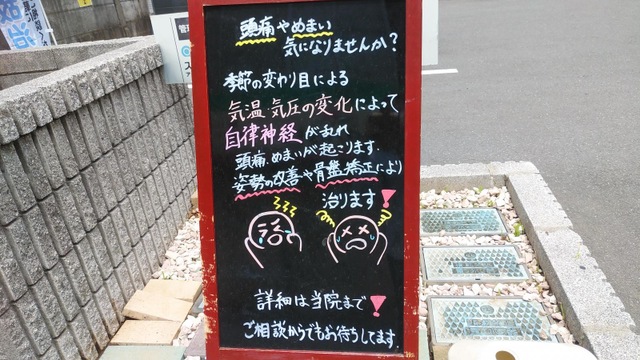 頭痛やめまい
気になりませんか?
季節の変わり目による
気温・気圧の変化によって
自律神経が乱れ
頭痛、めまいが起こります。
姿勢の改善や骨盤矯正により
治ります!
詳細は当院まで!
ご相談からでもお待ちしてます。